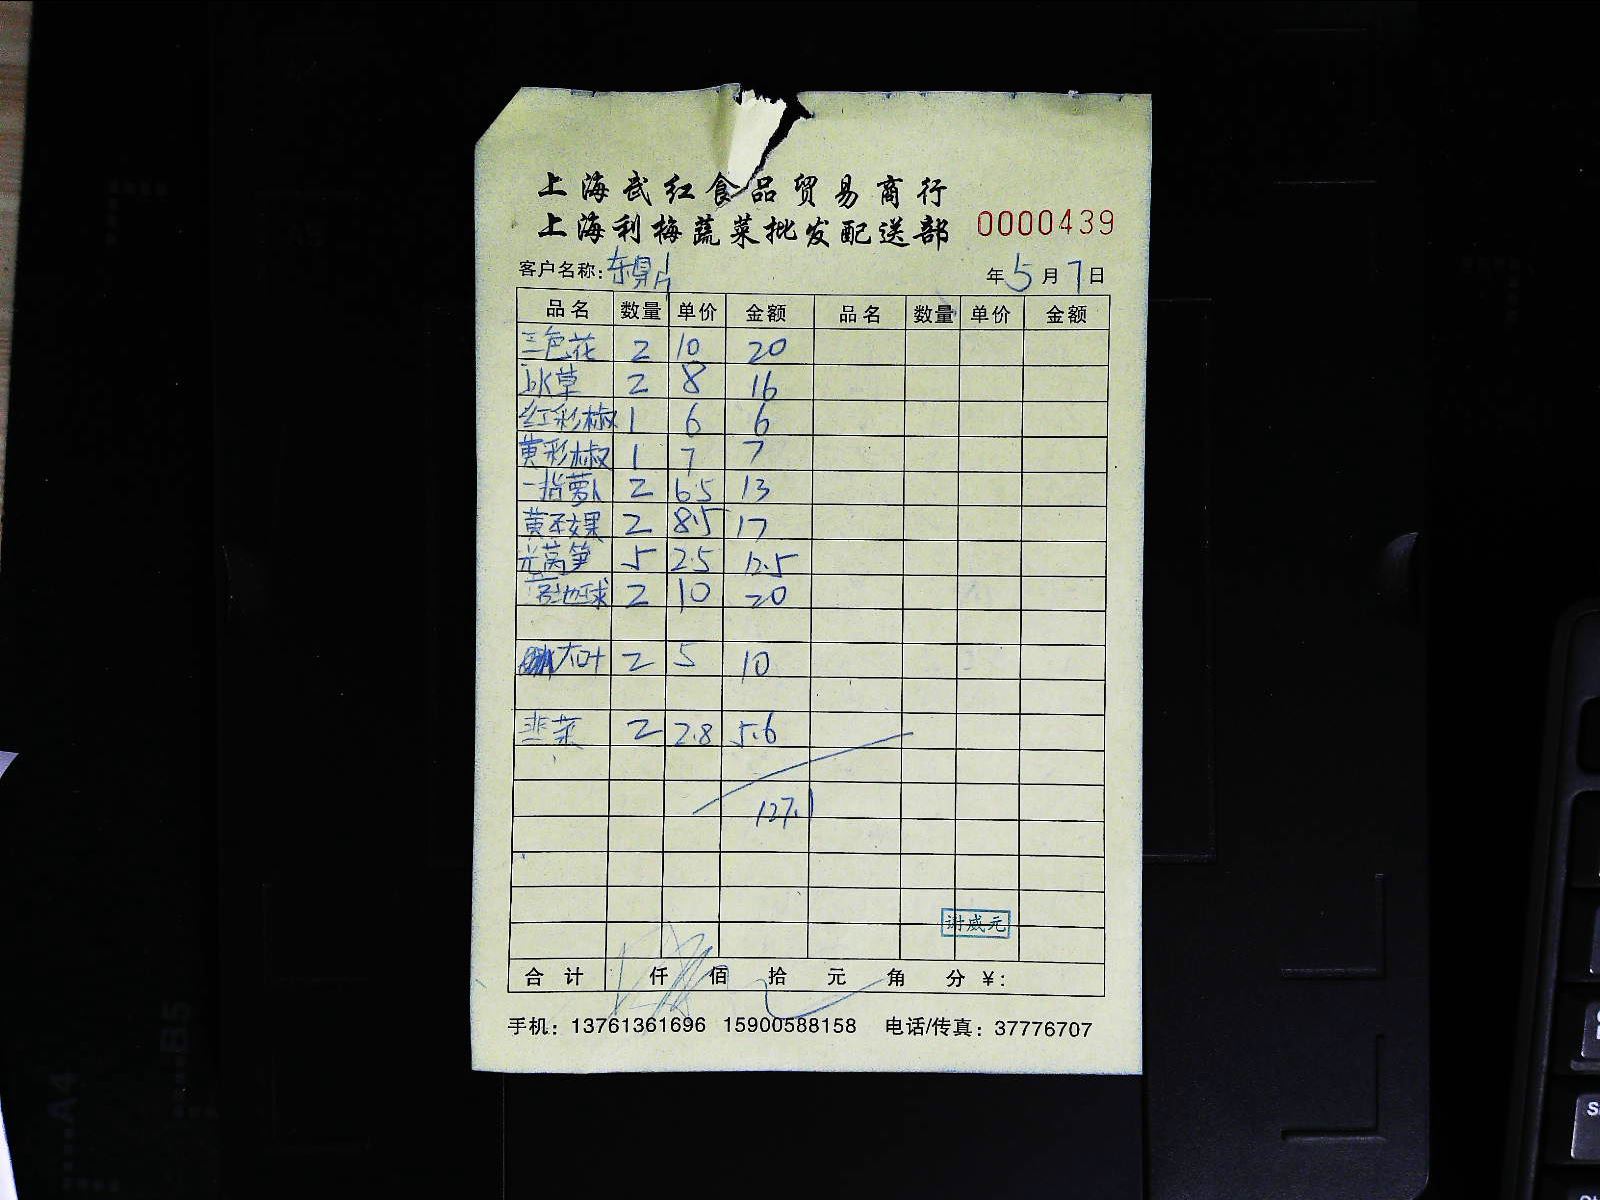 上海武红食品贸易商行
上海利梅蔬菜批发配送部 0000439
客户名称: 东鼎 年5月7日
品名 数量 单价 金额 品名 数量 单价 金额
三色花 2 10 20
冰草 2 8 16
红彩椒 1 6 6
黄彩椒 1 7 7
一指萝卜 2 6.5 13
黄不女果 2 8.5 17
光莴笋 5 2.5 12.5
地球 2 10 20
大叶 2 5 10
韭菜 2 2.8 5.6
127.1
谢威元
合计 仟 佰 拾 元 角 分 ¥:
手机: 13761361696 15900588158 电话/传真: 37776707
A4
B5